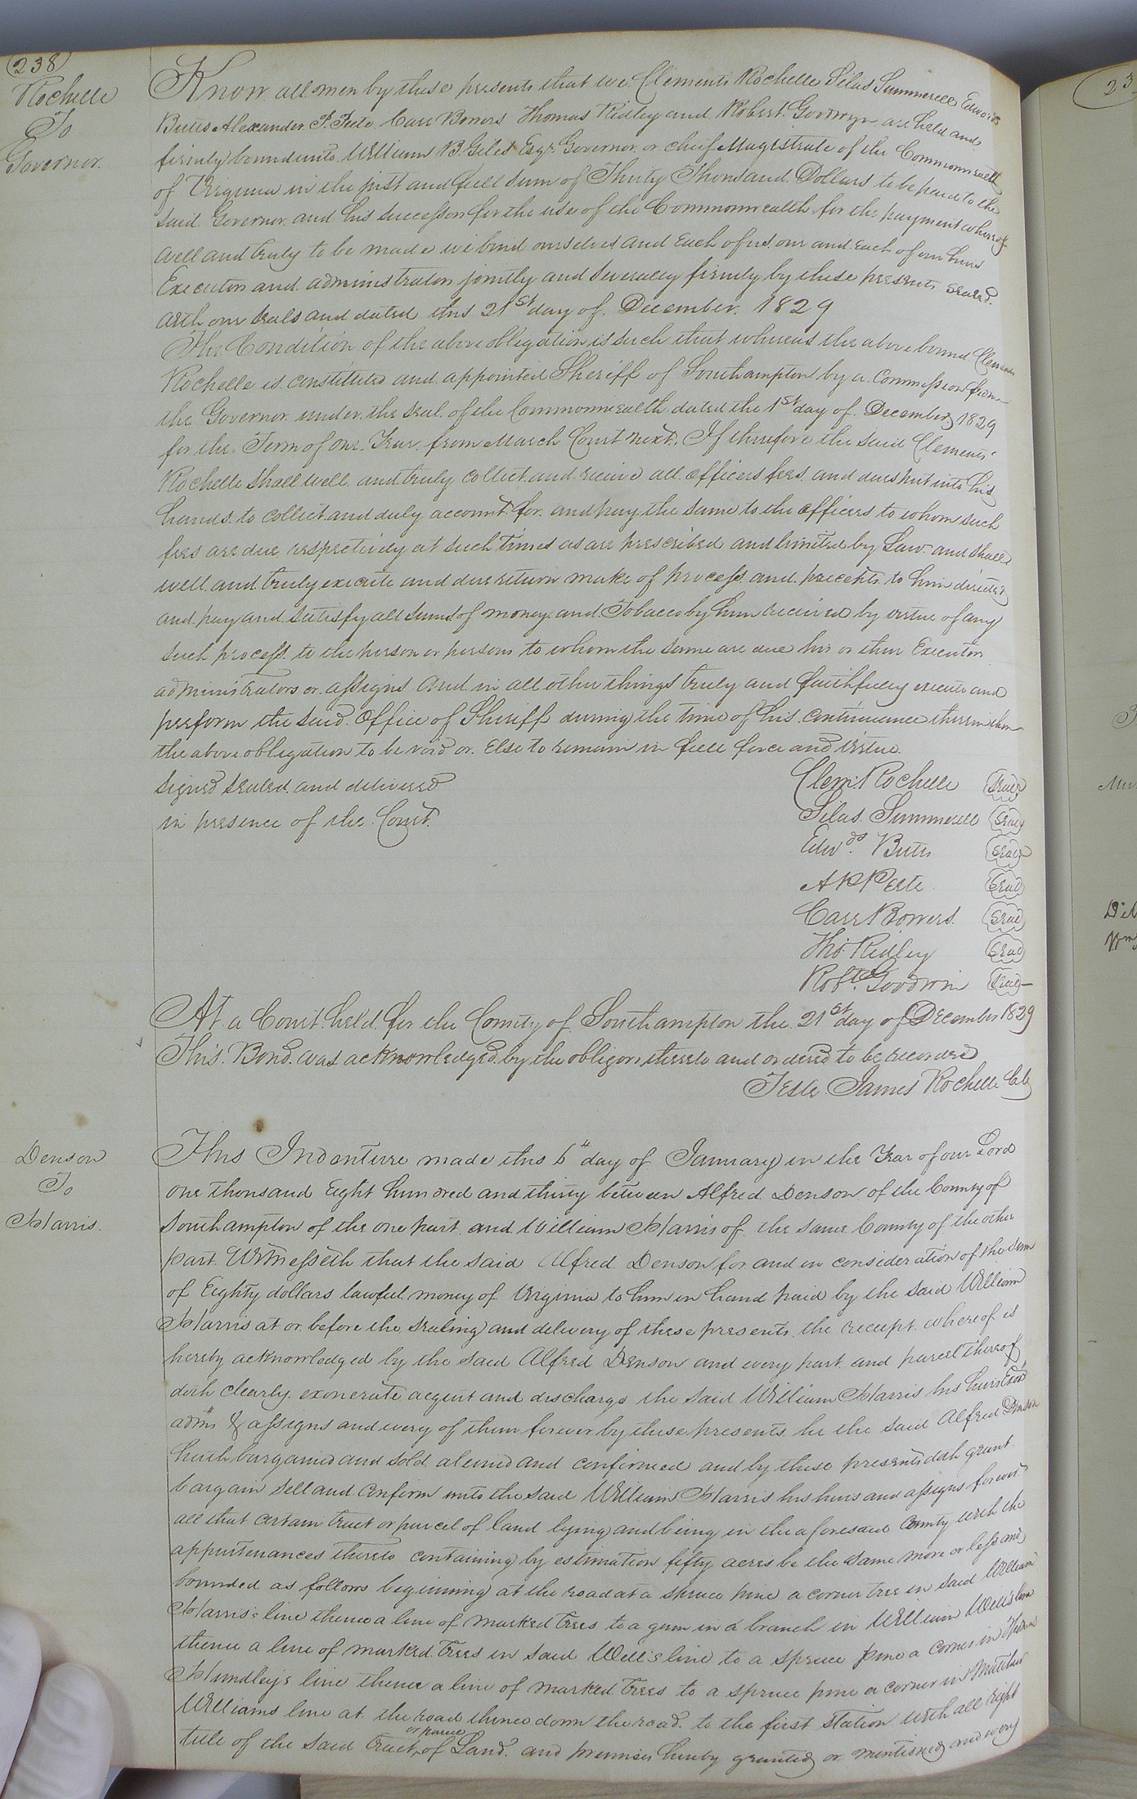 238
Rochelle
To
Governor.
Know all men by these presents that we Clements Rochelle Silas Summerell Edwards
Butts Alexander P. Peete Carr Bowers Thomas Ridley and Robert Goodwyn are held and
firmly bound unto William B. Giles Esqr. Governor or chief Magistrate of the Commonwealth
of Virginia in the just and full sum of Thirty Thousand Dollars to be paid to the
said Governor and his successors for the use of the Commonwealth for the payment whereof
well and truly to be made we bind ourselves and each of us our and each of our heirs
Executors and administrators jointly and severally firmly by these presents sealed.
with our seals and dated this 21st day of December. 1829
The Condition of the above obligation is such that whereas the above bound Clements
Rochelle is constituted and appointed Sheriff of Southampton by a Commission from
the Governor under the seal of the Commonwealth dated the 1st day of December 1829
for the Term of one Year from March Court next, If therefore the said Clements
Rochelle shall well and truly collect and receive all officers fees and dues put into his
hands to collect and duly account for and pay the same to the officers to whom such
fees are due respectively at such times as are prescribed and limited by Law and shall
well and truly execute and due return make of process and precepts to him directed
and pay and satisfy all sums of money and Tobacco by him received by virtue of any
such process to the person or persons to whom the same are due his or their Executors
administrators or assigns and in all other things truly and faithfully execute and
perform the said Office of Sheriff during the time of his continuance therein then
the above obligation to be void or Else to remain in full force and virtue.
Signed sealed and delivered
in presence of the Court.
Clem: Rochelle Seal
Silas Summerell Seal
Edwds. Butts Seal
A P Peete Seal
Carr Bowers Seal
Tho Ridley Seal
Robt. Goodwin Seal
At a Court held for the County of Southampton the 21st day of December 1829
This Bond was acknowledged by the obligors thereto and ordered to be recorded
Teste James Rochelle Clk
Denson
To
Harris.
This Indenture made this 6th day of January in the Year of our Lord
one thousand Eight hundred and thirty between Alfred Denson of the County of
Southampton of the one part and William Harris of the same County of the other
part Witnesseth that the said Alfred Denson for and in consideration of the sum
of Eighty dollars lawful money of Virginia to him in hand paid by the said William
Harris at or before the sealing and delivery of these presents the receipt whereof is
hereby acknowledged by the said Alfred Denson and every part and parcel thereof
doth clearly exonerate acquit and discharge the said William Harris his heirs Exors
adm's & assigns and every of them forever by these presents he the said Alfred Denson
hath bargained and sold aliened and confirmed and by these presents doth grant
bargain sell and confirm unto the said William Harris his heirs and assigns forever
all that certain tract or parcel of land lying and being in the aforesaid County with the
appurtenances thereto containing by estimation fifty acres be the same more or less and
bounded as follows beginning at the road at a spruce pine a corner tree in said William
Harris's line thence a line of marked trees to a gum in a branch in William Wells line
thence a line of marked trees in said Wells's line to a spruce pine a corner in
Hundley's line thence a line of marked trees to a spruce pine a corner in
Williams line at the road thence down the road to the first station with all right
title of the said tract or parcel of Land and premises hereby granted or mentioned and every